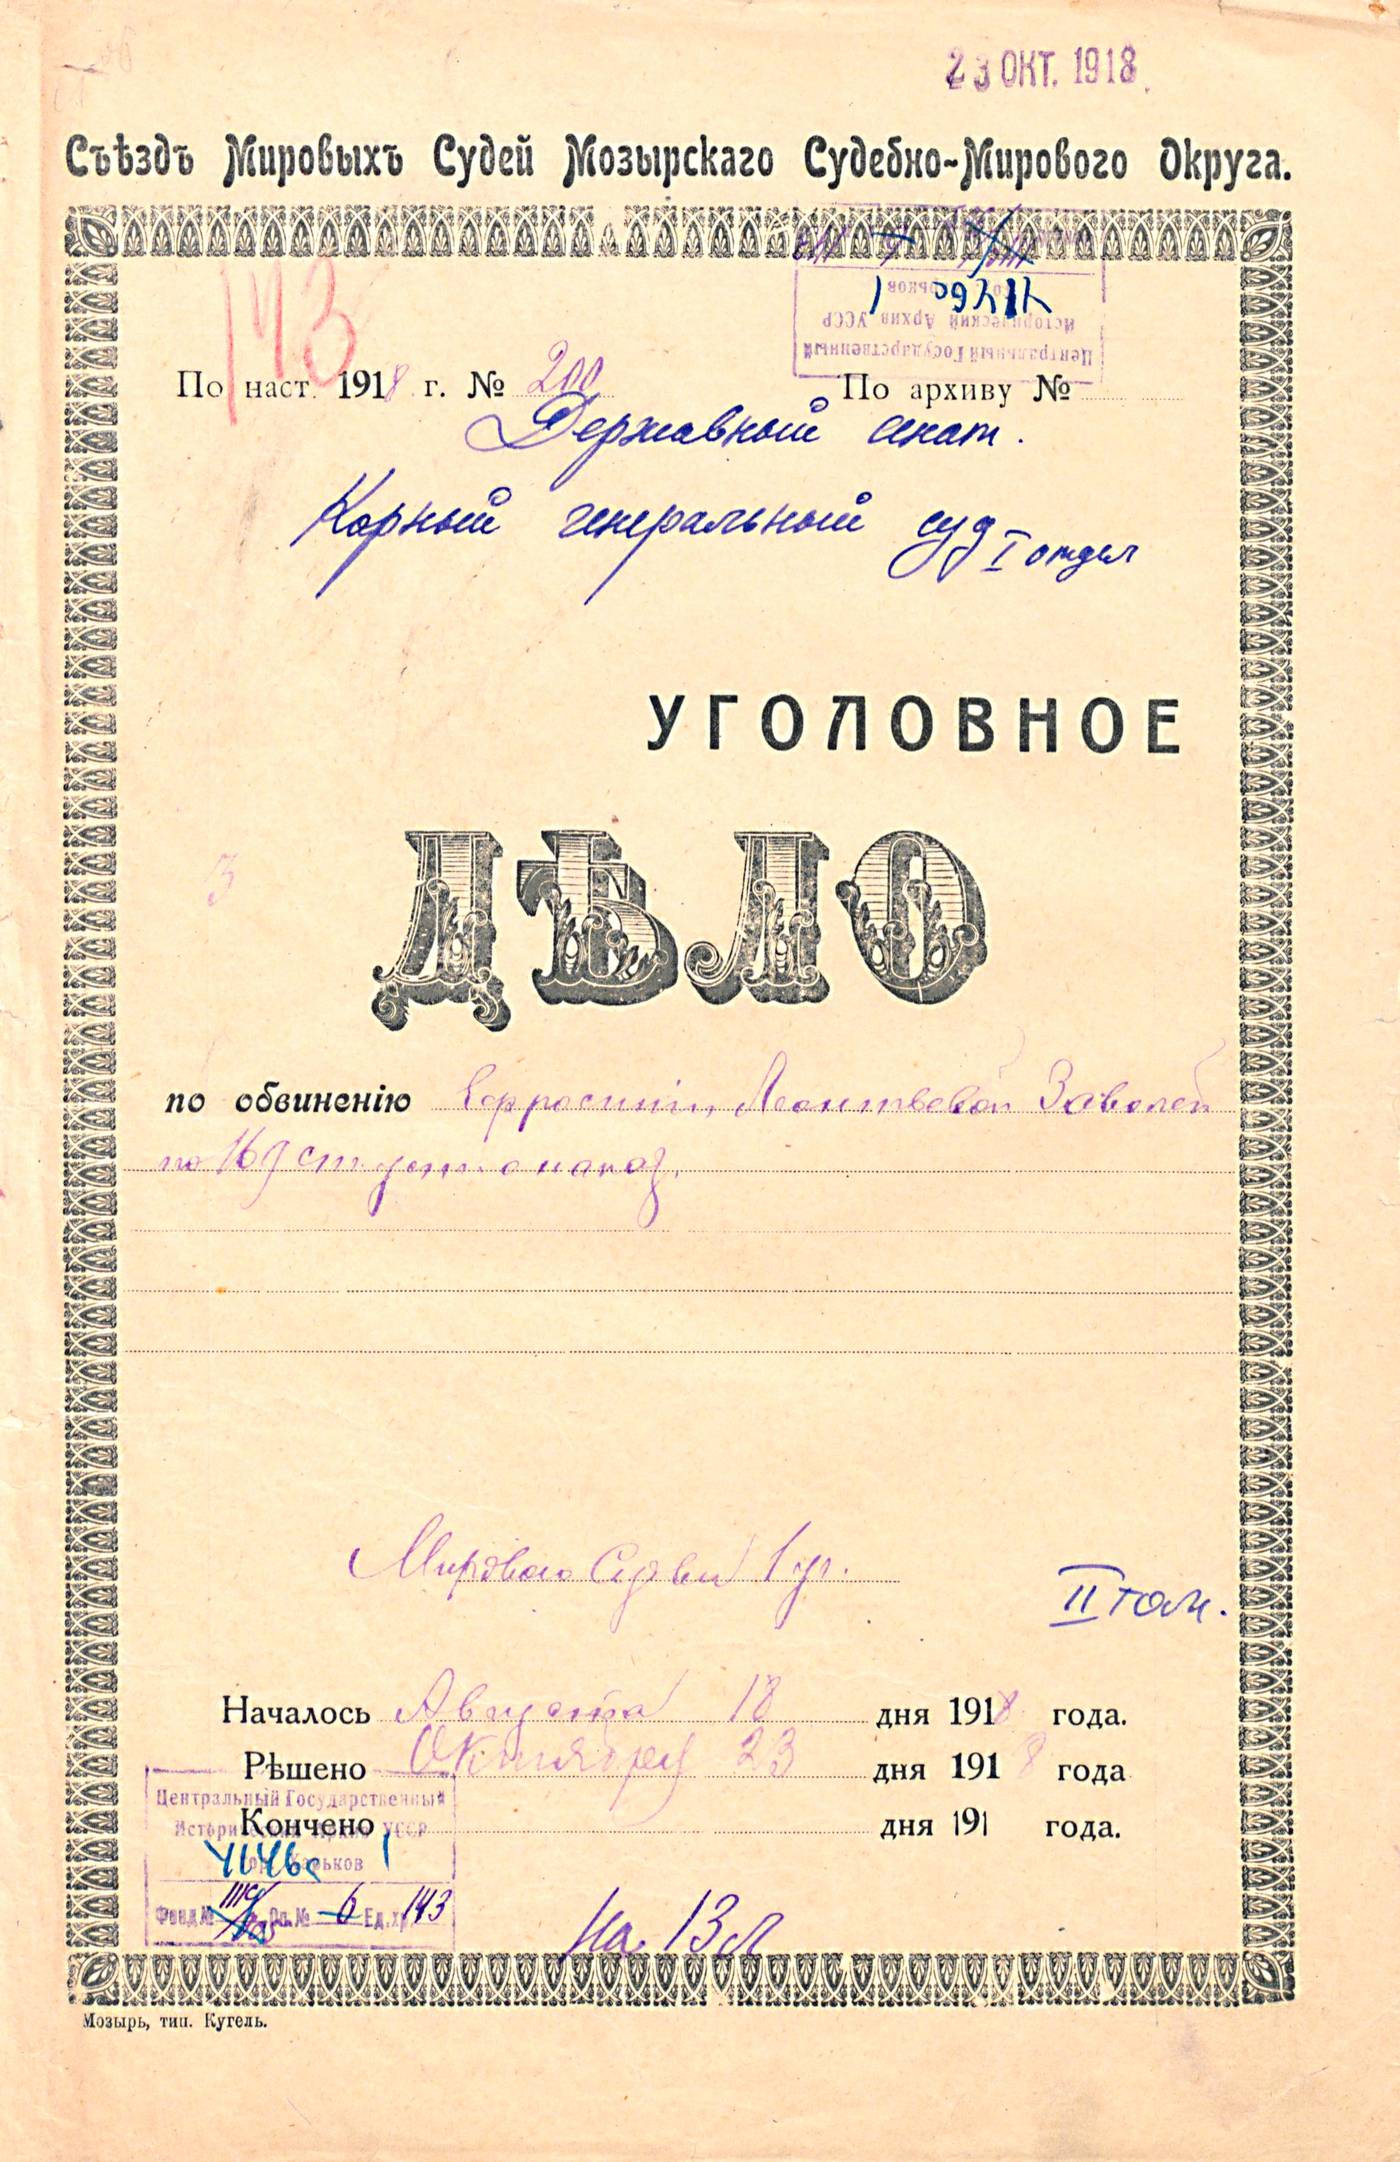 23 ОКТ. 1918
Съѣздъ Мировыхъ Судей Мозырскаго Судебно-Мирового Округа.
Центральный Государственный
Исторический Архив УССР
143
По наст. 1918 г. № 200
По архиву №
Державный сенат.
Карный генеральный суд I отдел
УГОЛОВНОЕ
ДѢЛО
3
по обвиненію Евфросиніи Леонтьевой Заволей
по 169 ст. уст. о наказ.
Мирового Судьи 1 уч.
II том.
Началось Августа 18 дня 1918 года.
Рѣшено Октября 23 дня 1918 года
Кончено дня 191 года.
Центральный Государственный
Исторический Архив УССР
гор. Харьков
Фонд № Оп. № 6 Ед. хр. 143
на 13 л
Мозырь, тип. Кугель.